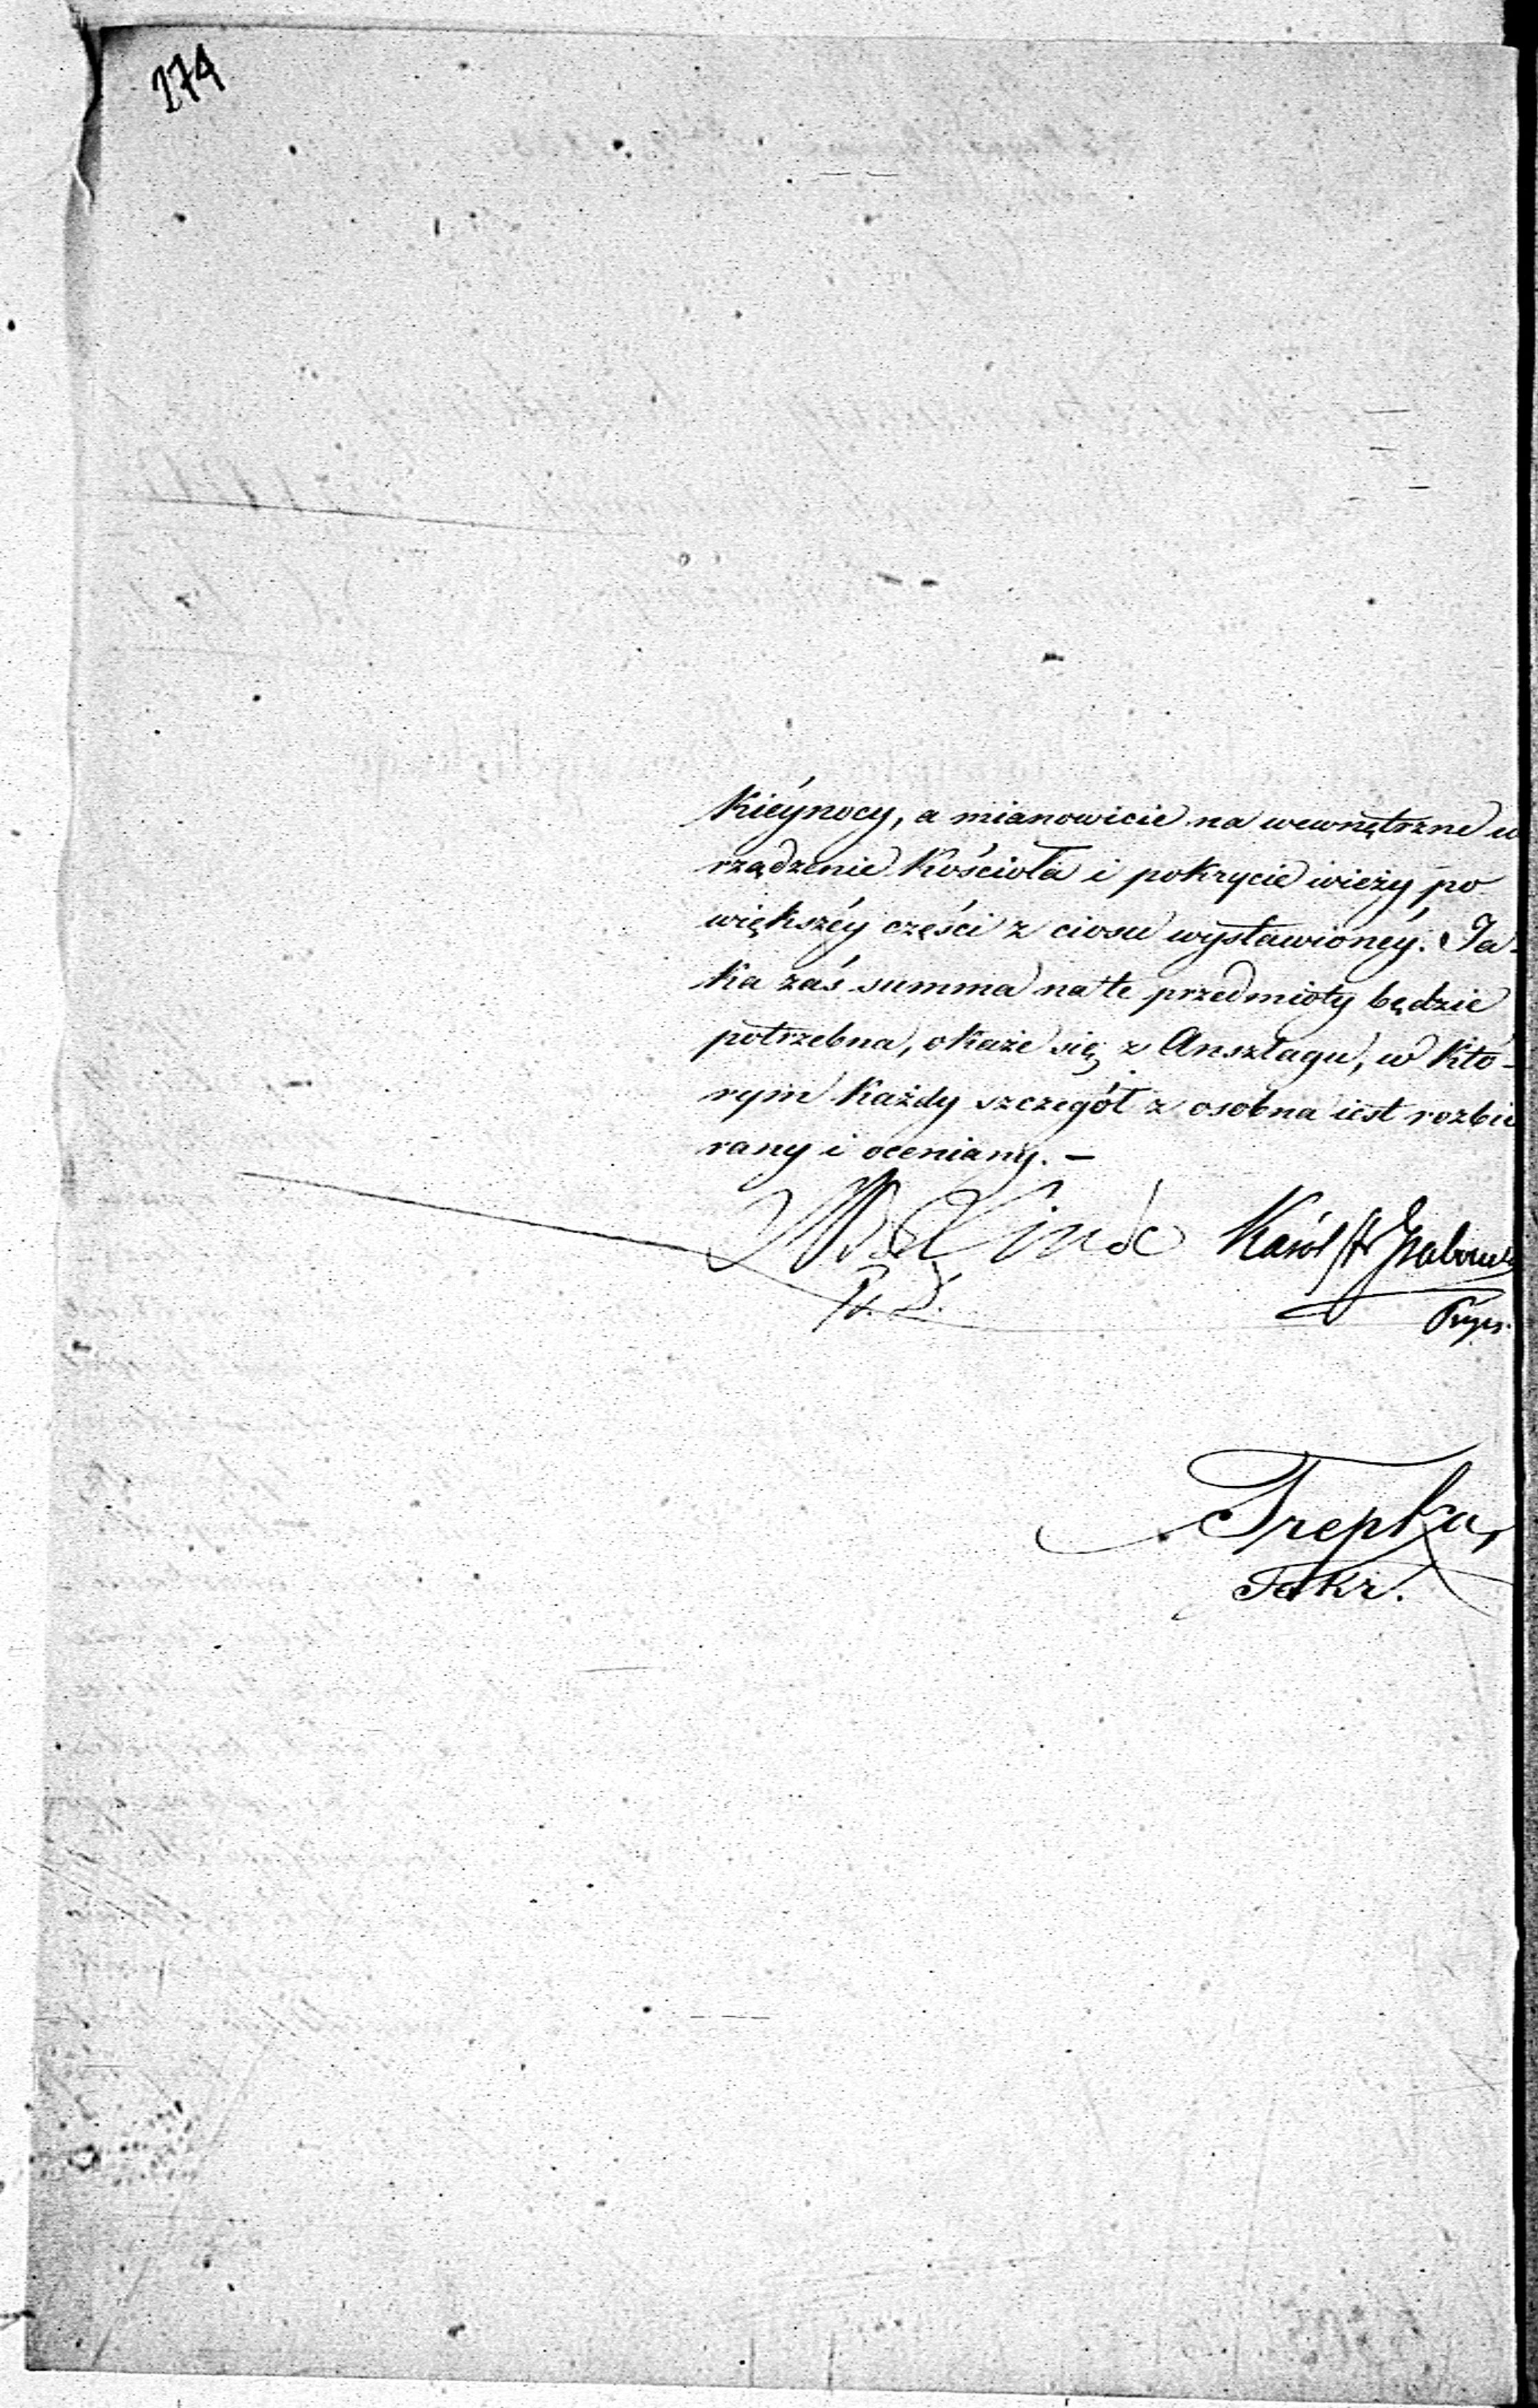 274
kiéynocy, a mianowicie na wewnętrzne u
rządzenie Kościoła i pokrycie wieży po
większéy części z ciosu wystawionéy. Ja-
ka zaś summa na te przedmioty będzie
potrzebna, okaże się z Anszlagu, w któ-
rym każdy szczegół z osobna iest rozbie
rany i oceniany. —
Karól Hr Grabows
Trepka,
Sekr.